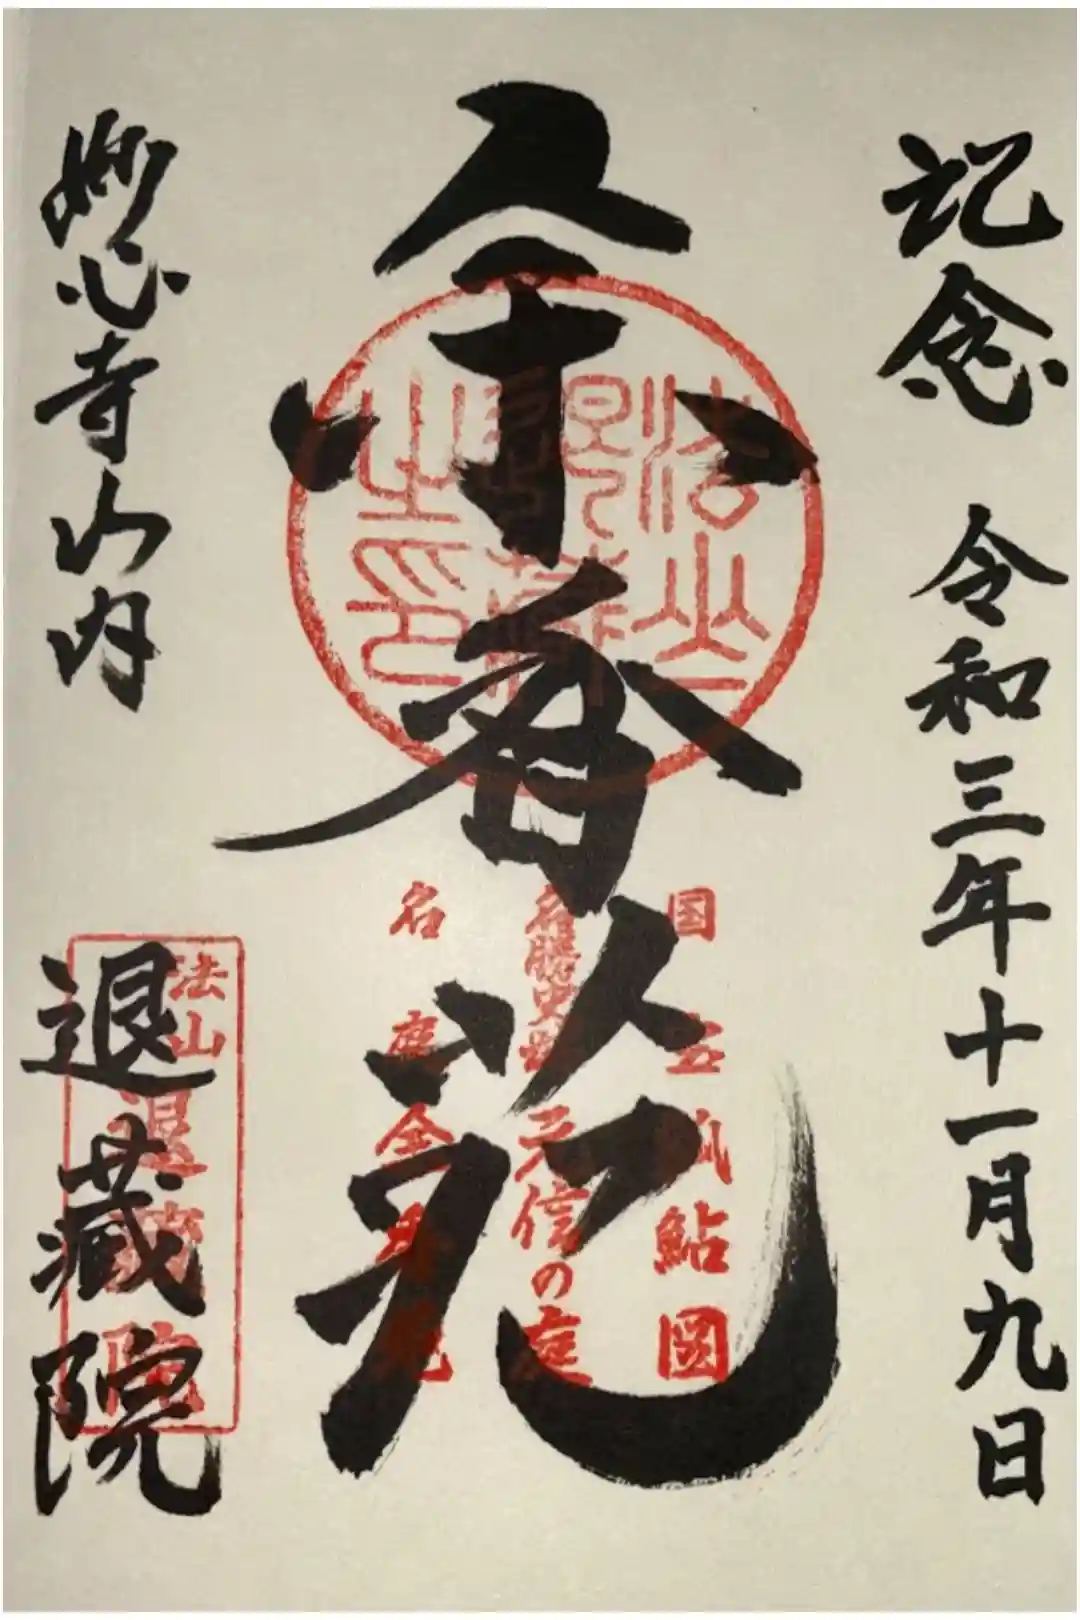 記念 令和三年十一月九日
余香苑
法山
退蔵
之印
国宝瓢鮎図
名勝史跡 元信の庭
名庭余香苑
妙心寺山内
退蔵院
法山
退蔵院